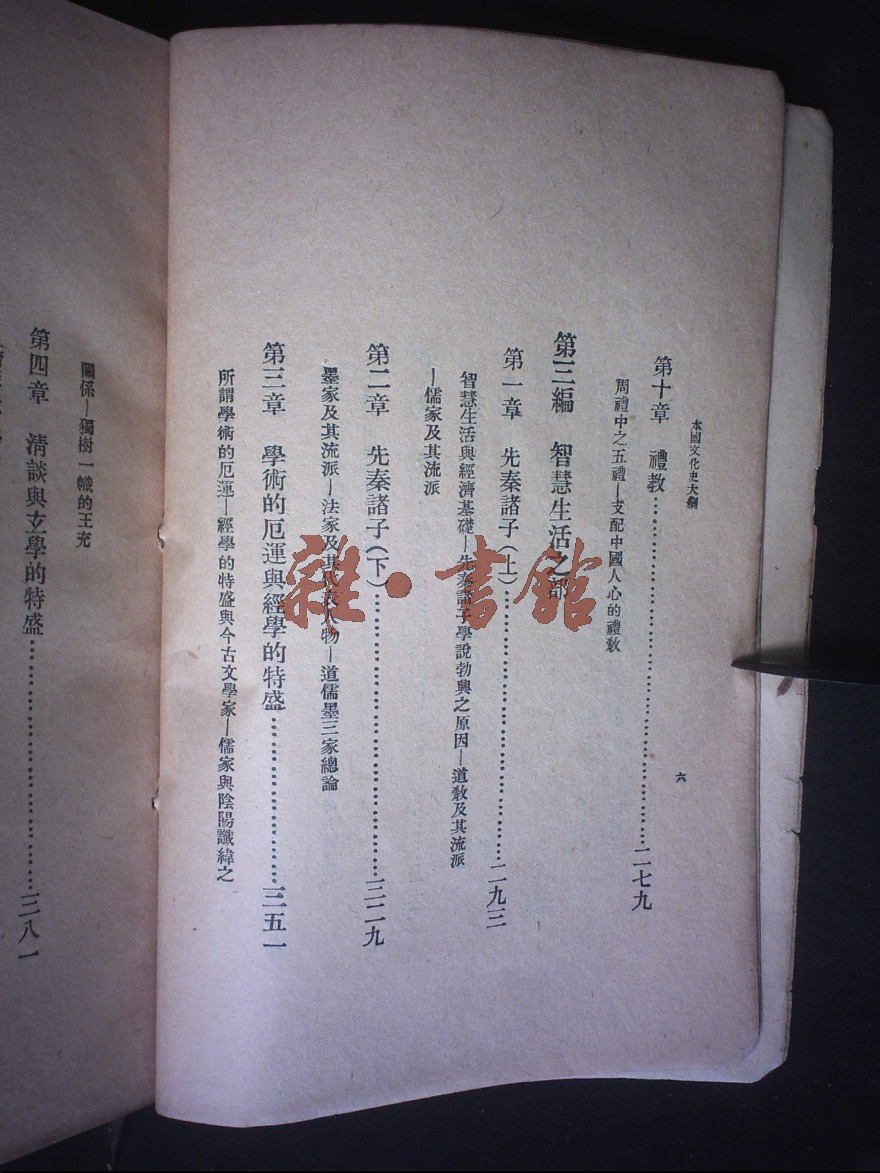 本國文化史大綱
六
第十章　禮教……二七九
周禮中之五禮—支配中國人心的禮教
第三編　智慧生活之部
第一章　先秦諸子(上)……二九三
智慧生活與經濟基礎—先秦諸子學說勃興之原因—道教及其流派
—儒家及其流派
第二章　先秦諸子(下)……三二九
墨家及其流派—法家及其代表人物—道儒墨三家總論
第三章　學術的厄運與經學的特盛……三五一
所謂學術的厄運—經學的特盛與今古文學家—儒家與陰陽讖緯之
關係—獨樹一幟的王充
第四章　清談與玄學的特盛……三八一
雜·書館